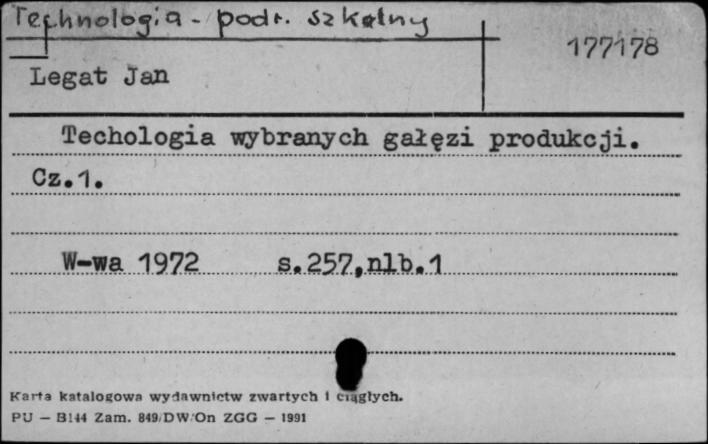 Technologia - podr. szkolny
177178
Legat Jan
Techologia wybranych gałęzi produkcji.
Cz.1.
W-wa 1972 s.257,nlb.1
Karta katalogowa wydawnictw zwartych i ciągłych.
PU — B144 Zam. 849/DW/On ZGG — 1991